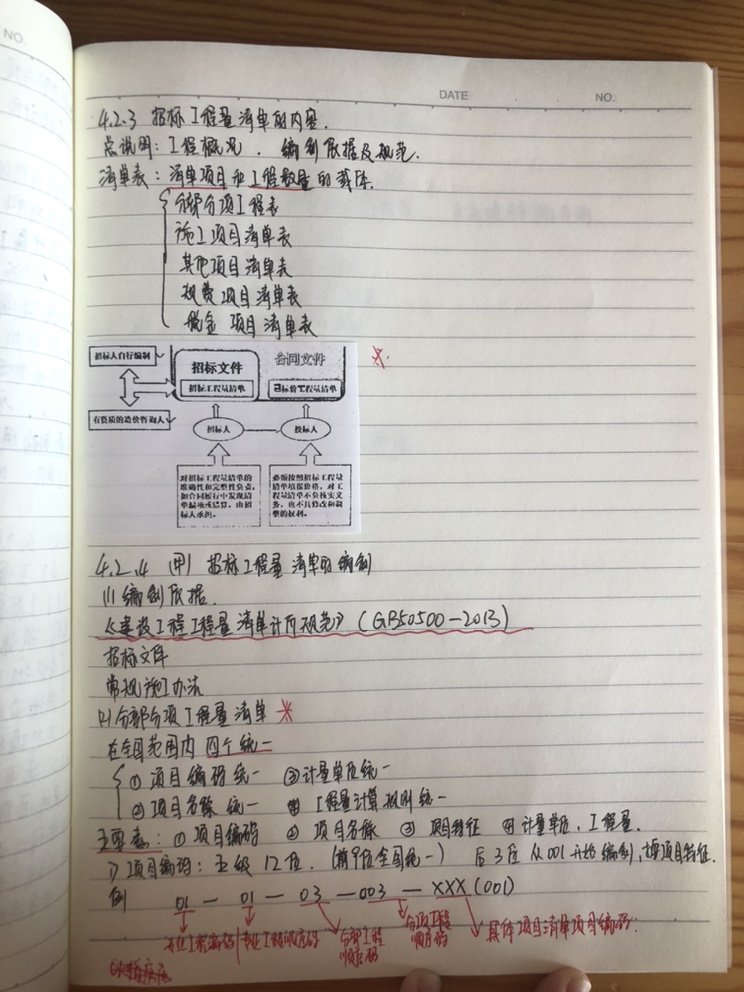 NO.
DATE NO.
4.2.3 招标工程量清单的内容.
总说明: 工程概况. 编制依据及规范.
清单表: 清单项目和工程数量的载体.
分部分项工程表
施工项目清单表
其他项目清单表
规费项目清单表
税金项目清单表
招标人自行编制
有资质的造价咨询人
招标文件
招标工程量清单
合同文件
已标价工程量清单
招标人
投标人
对招标工程量清单的
准确性和完整性负责,
如合同履行中发现清
单漏项或错算,由招
标人承担。
必须按照招标工程量
清单填报价格,对工
程量清单不负核实义
务,也不具修改和调
整的权利。
4.2.4 (甲) 招标工程量清单的编制
(1) 编制依据.
《建设工程工程量清单计价规范》(GB50500-2013)
招标文件
常规施工办法
(2) 分部分项工程量清单
在全国范围内 四个统一
① 项目编码统一 ③计量单位统一
② 项目名称统一 ④ 工程量计算规则统一
五要素: ① 项目编码 ② 项目名称 ③ 项目特征 ④ 计量单位, 工程量.
1) 项目编码: 五级12位. (前9位全国统一) 后3位从001开始编制, 项目特征.
例 01 - 01 - 03 - 003 - XXX (001)
专业工程编码 专业工程顺序码 分部工程顺序码 分项工程顺序码 具体项目清单项目编码.